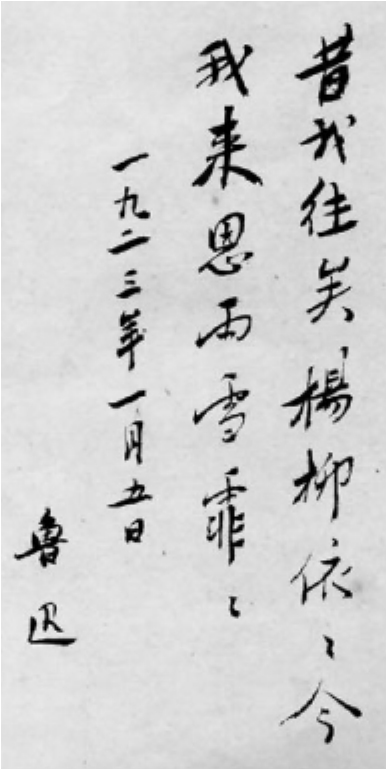 昔我往矣楊柳依〻今
我来思雨雪霏〻
一九二三年一月五日
魯迅